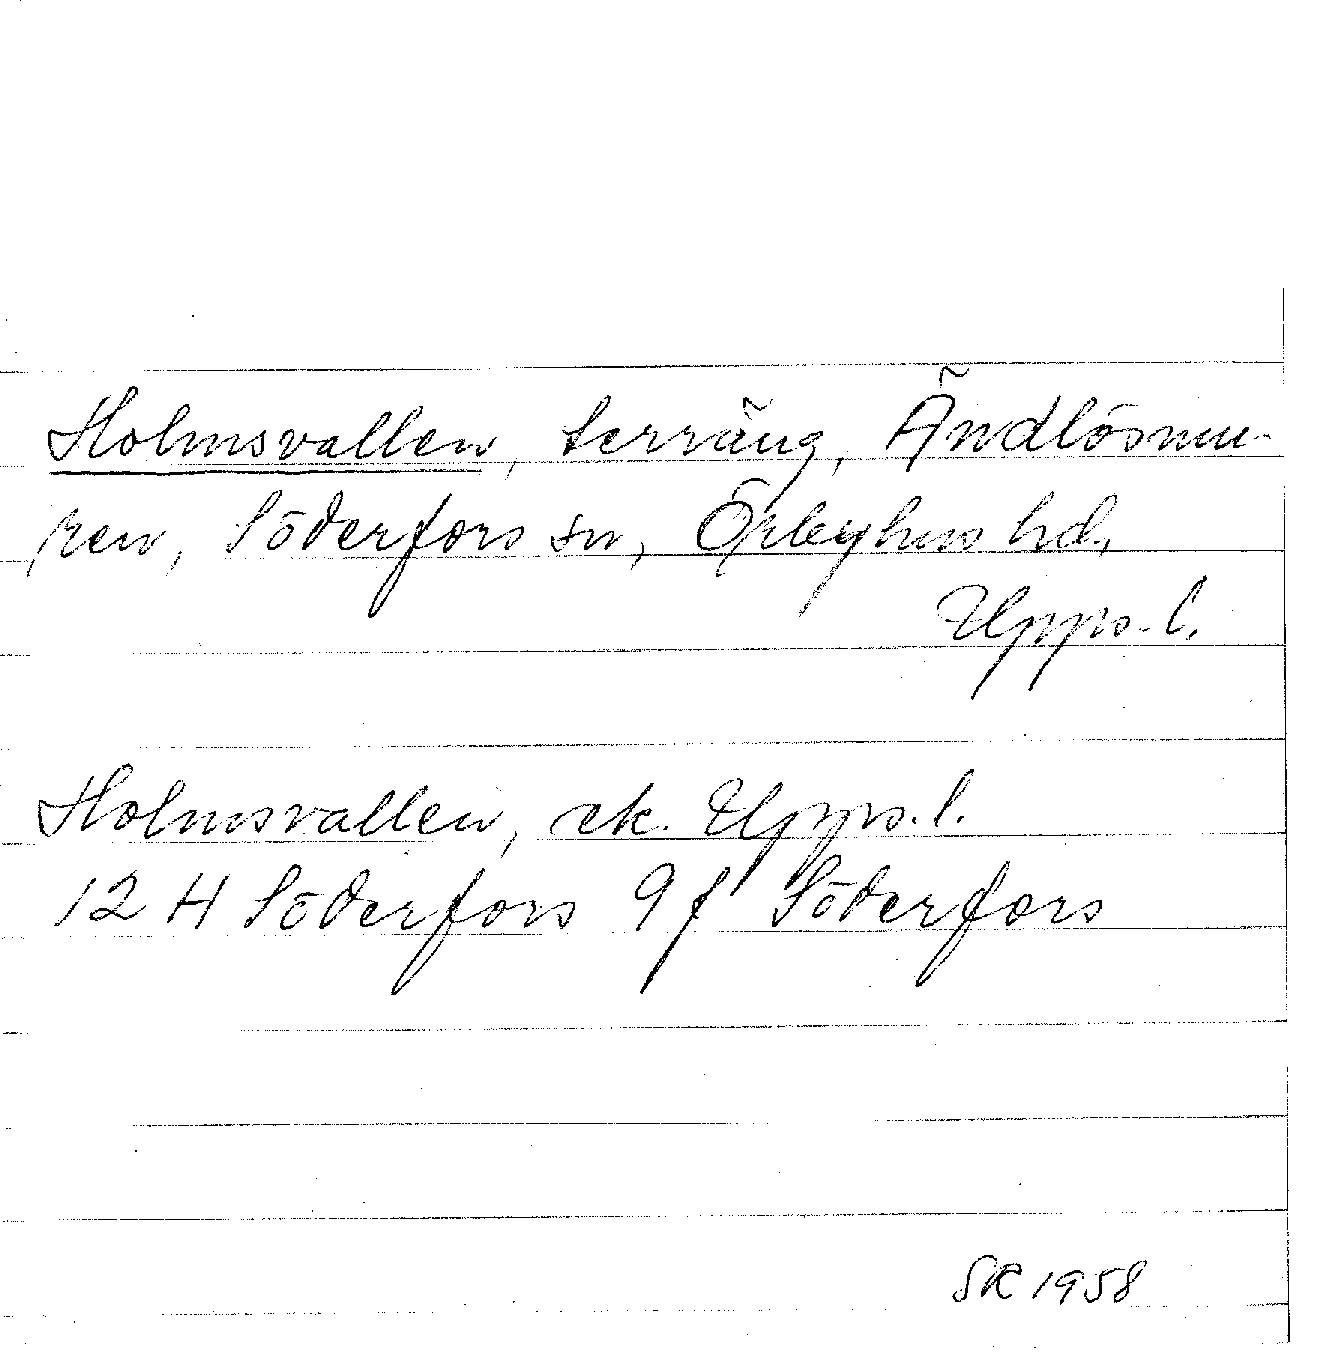 Holmsvallen, terräng, Ändlösmu-
ren, Söderfors sn, Örbyhus hd,
Upps. l.
Holmsvallen, ek. Upps. l.
12 H Söderfors 9 f Söderfors
SK 1958